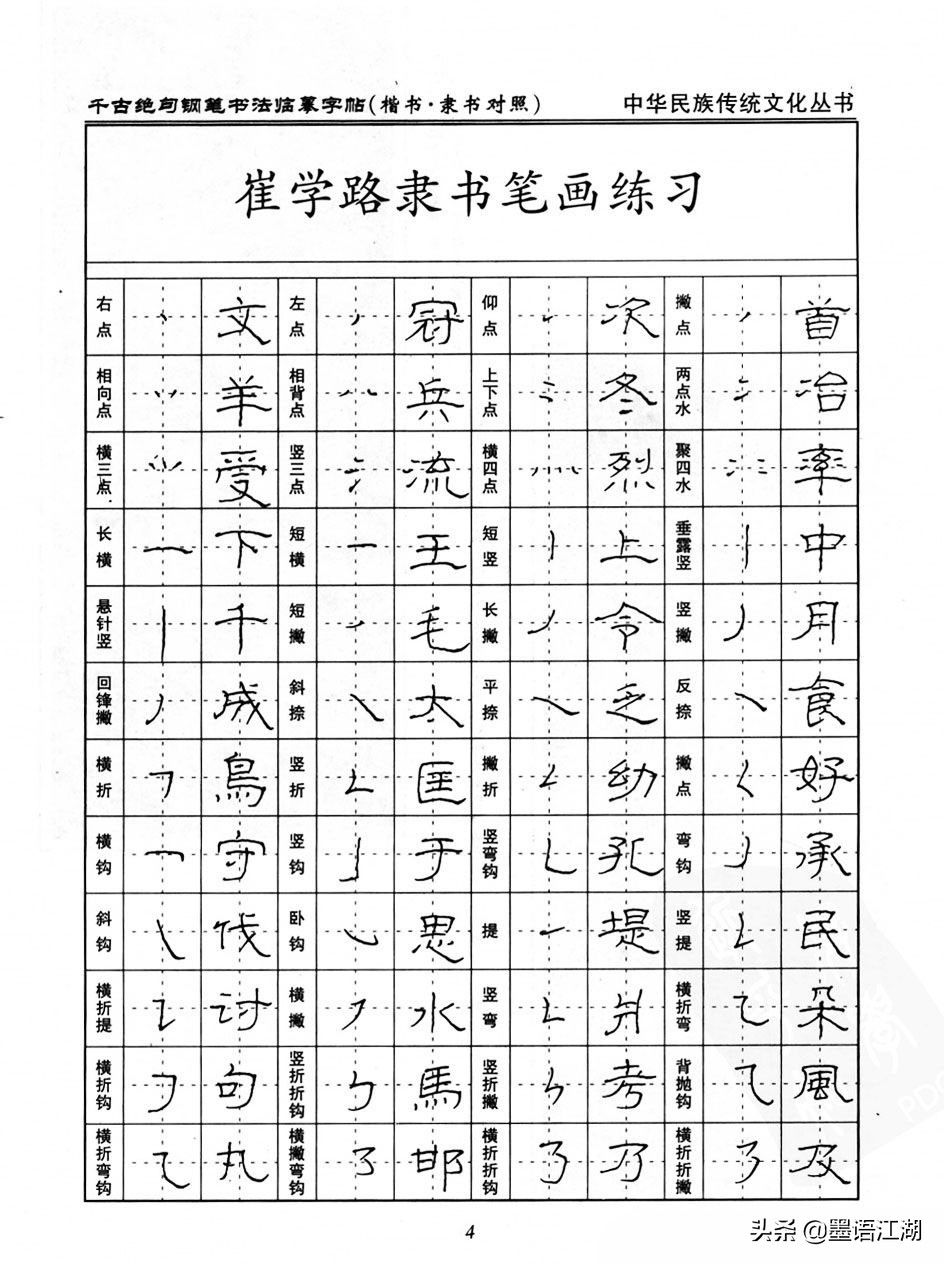 千古绝句钢笔书法临摹字帖(楷书·隶书对照) 中华民族传统文化丛书
崔学路隶书笔画练习
右点 文 左点 冠 仰点 次 撇点 首
相向点 羊 相背点 兵 上下点 冬 两点水 冶
横三点 受 竖三点 流 横四点 烈 聚四水 率
长横 下 短横 王 短竖 上 垂露竖 中
悬针竖 千 短撇 毛 长撇 令 竖撇 月
回锋撇 成 斜捺 太 平捺 乏 反捺 食
横折 鳥 竖折 匡 撇折 幼 撇点 好
横钩 守 竖钩 于 竖弯钩 孔 弯钩 承
斜钩 伐 卧钩 思 提 堤 竖提 民
横折提 讨 横撇 水 竖弯 横折弯 朵
横折钩 句 竖折折钩 馬 竖折撇 考 背抛钩 風
横折弯钩 丸 横撇弯钩 邯 横折折钩 乃 横折折撇 及
4
头条 @墨语江湖